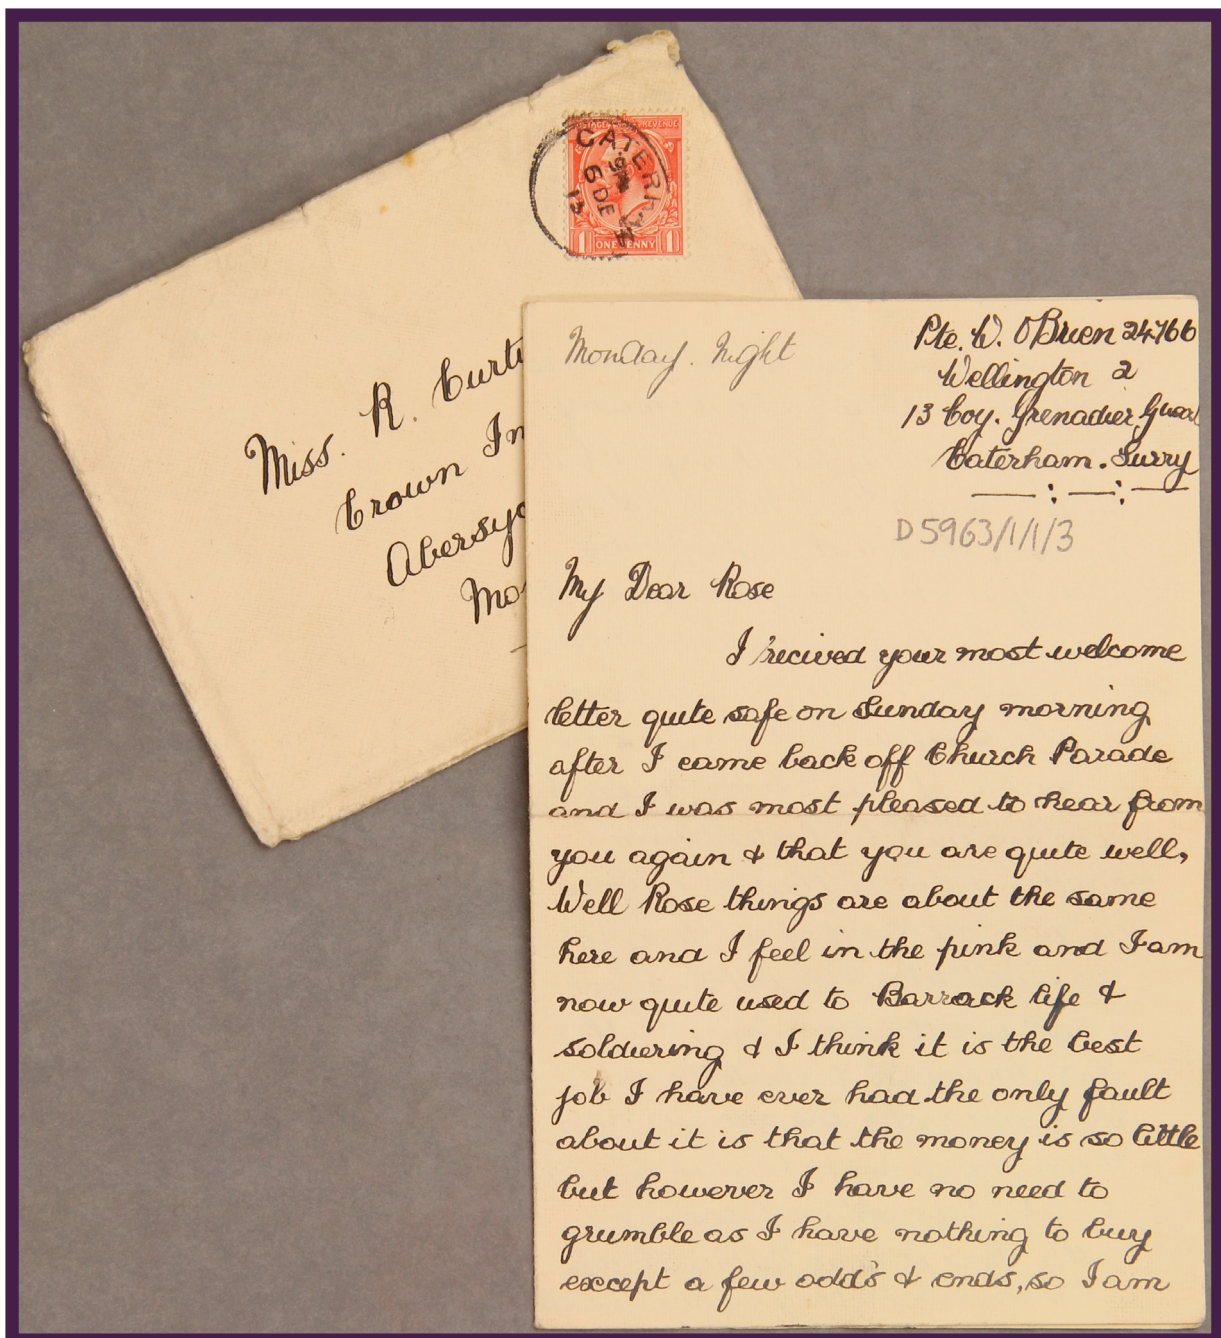 POSTAGE REVENUE
CATERHAM
6 DE
15
1 ONE PENNY 1
Miss. R. Curti
Crown In
Abersyc
Mo
Monday. Night
Pte. W. O'Brien 24766
Wellington 2
13 Coy. Grenadier Guard
Caterham. Surry
D5963/1/1/3
My Dear Rose
I recived your most welcome
letter quite safe on Sunday morning
after I came back off Church Parade
and I was most pleased to hear from
you again & that you are quite well,
Well Rose things are about the same
here and I feel in the pink and I am
now quite used to Barrack life &
soldiering & I think it is the best
job I have ever had the only fault
about it is that the money is so little
but however I have no need to
grumble as I have nothing to buy
except a few odd's & ends, so I am